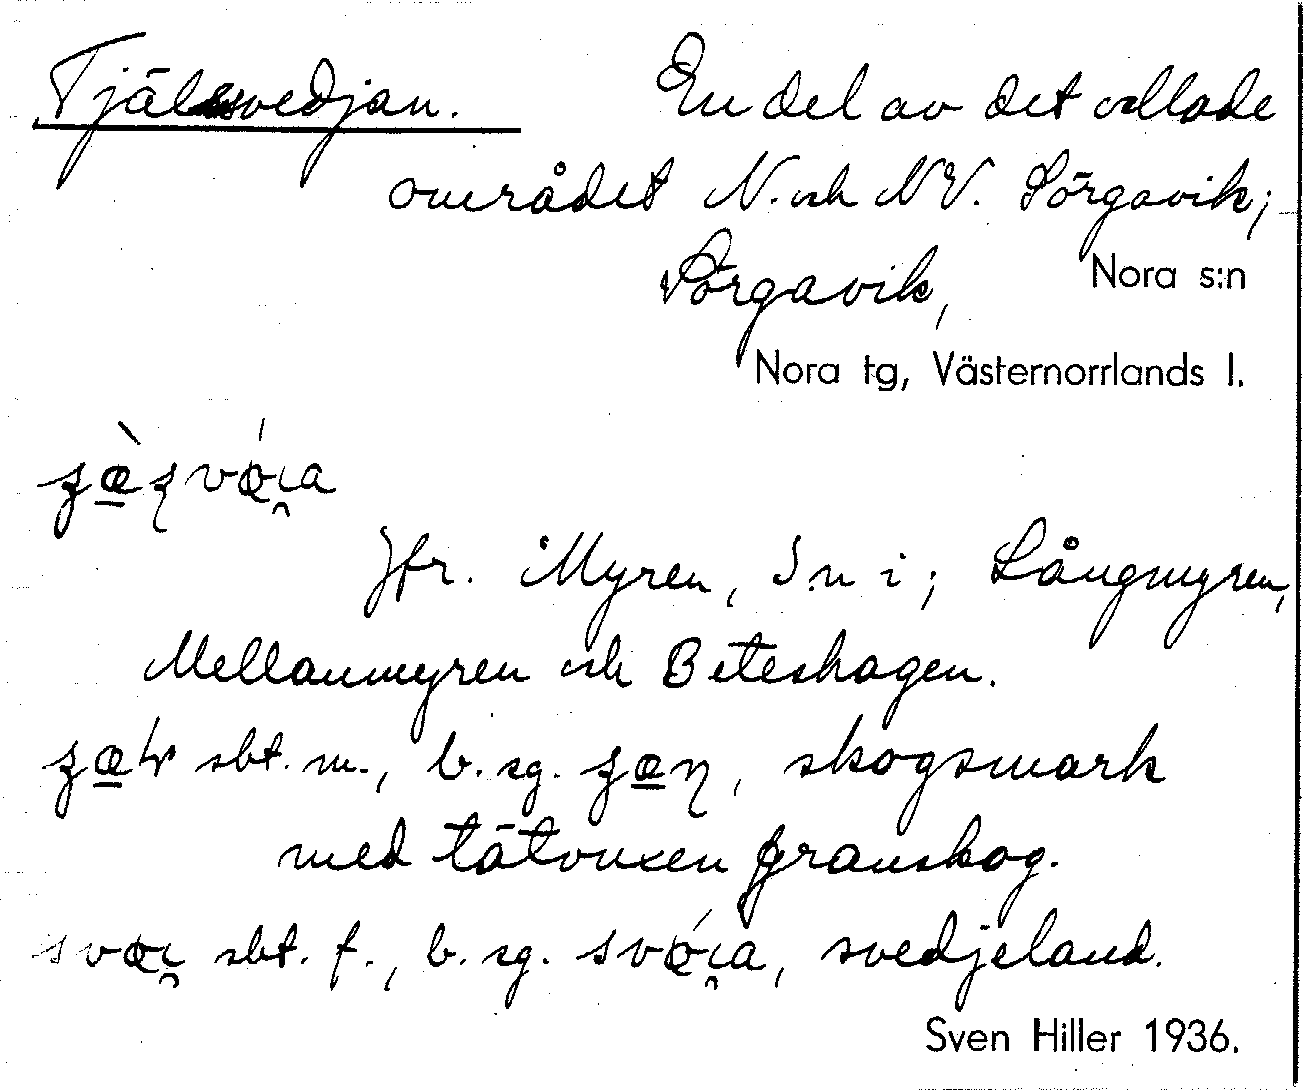 Tjälsvedjan. En del av det odlade
området N. och NV. Sörgavik;
Sörgavik, Nora s:n
Nora tg, Västernorrlands l.
Jfr. Myren, S:n i; Långmyren,
Mellanmyren och Beteshagen.
sbt. m., b. sg. , skogsmark
med tätvuxen granskog.
sbt. f., b. sg. , svedjeland.
Sven Hiller 1936.